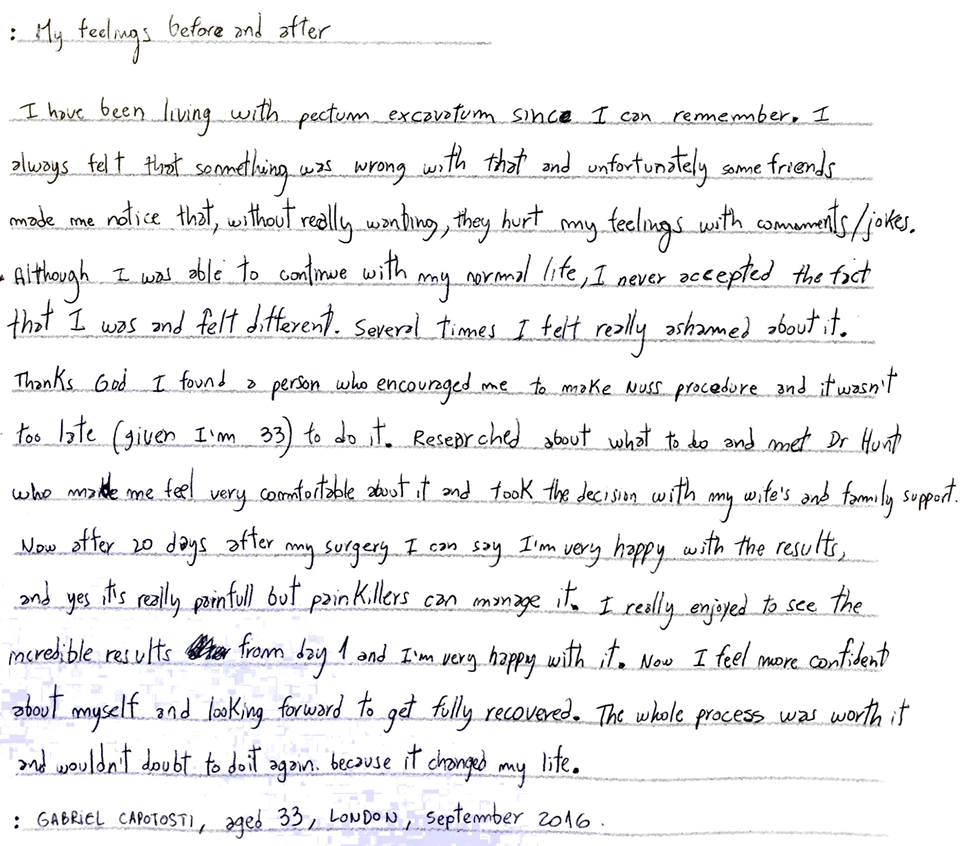 : My feelings before and after
I have been living with pectum excavatum since I can remember. I
always felt that something was wrong with that and unfortunately some friends
made me notice that, without really wanting, they hurt my feelings with comments/jokes.
Although I was able to continue with my normal life, I never accepted the fact
that I was and felt different. Several times I felt really ashamed about it.
Thanks God I found a person who encouraged me to make Nuss procedure and it wasn't
too late (given I'm 33) to do it. Researched about what to do and met Dr Hunt
who made me feel very comfortable about it and took the decision with my wife's and family support.
Now after 20 days after my surgery I can say I'm very happy with the results,
and yes it's really painfull but painkillers can manage it. I really enjoyed to see the
incredible results from day 1 and I'm very happy with it. Now I feel more confident
about myself and looking forward to get fully recovered. The whole process was worth it
and wouldn't doubt to do it again. because it changed my life.
: GABRIEL CAPOTOSTI, aged 33, LONDON, September 2016.